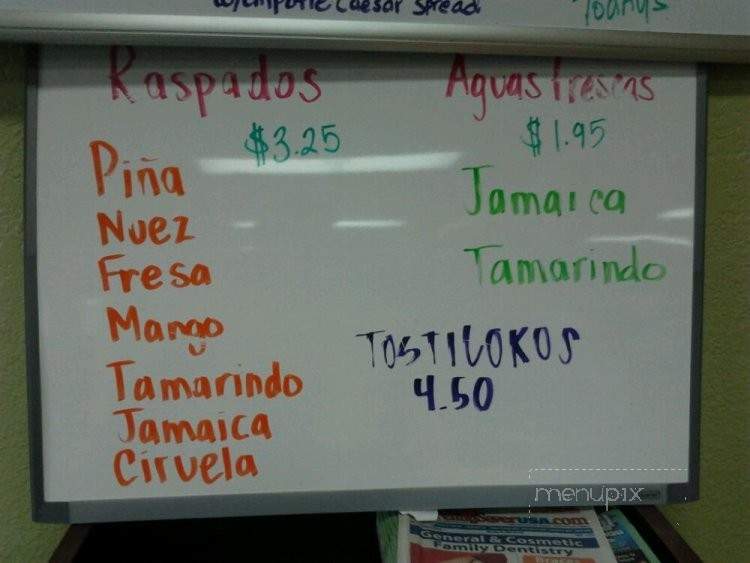 w/chipotle Caesar spread
Raspados
$3.25
Piña
Nuez
Fresa
Mango
Tamarindo
Jamaica
Ciruela
Aguas frescas
$1.95
Jamaica
Tamarindo
TOSTILOKOS
4.50
menupix
General & Cosmetic
Family Dentistry